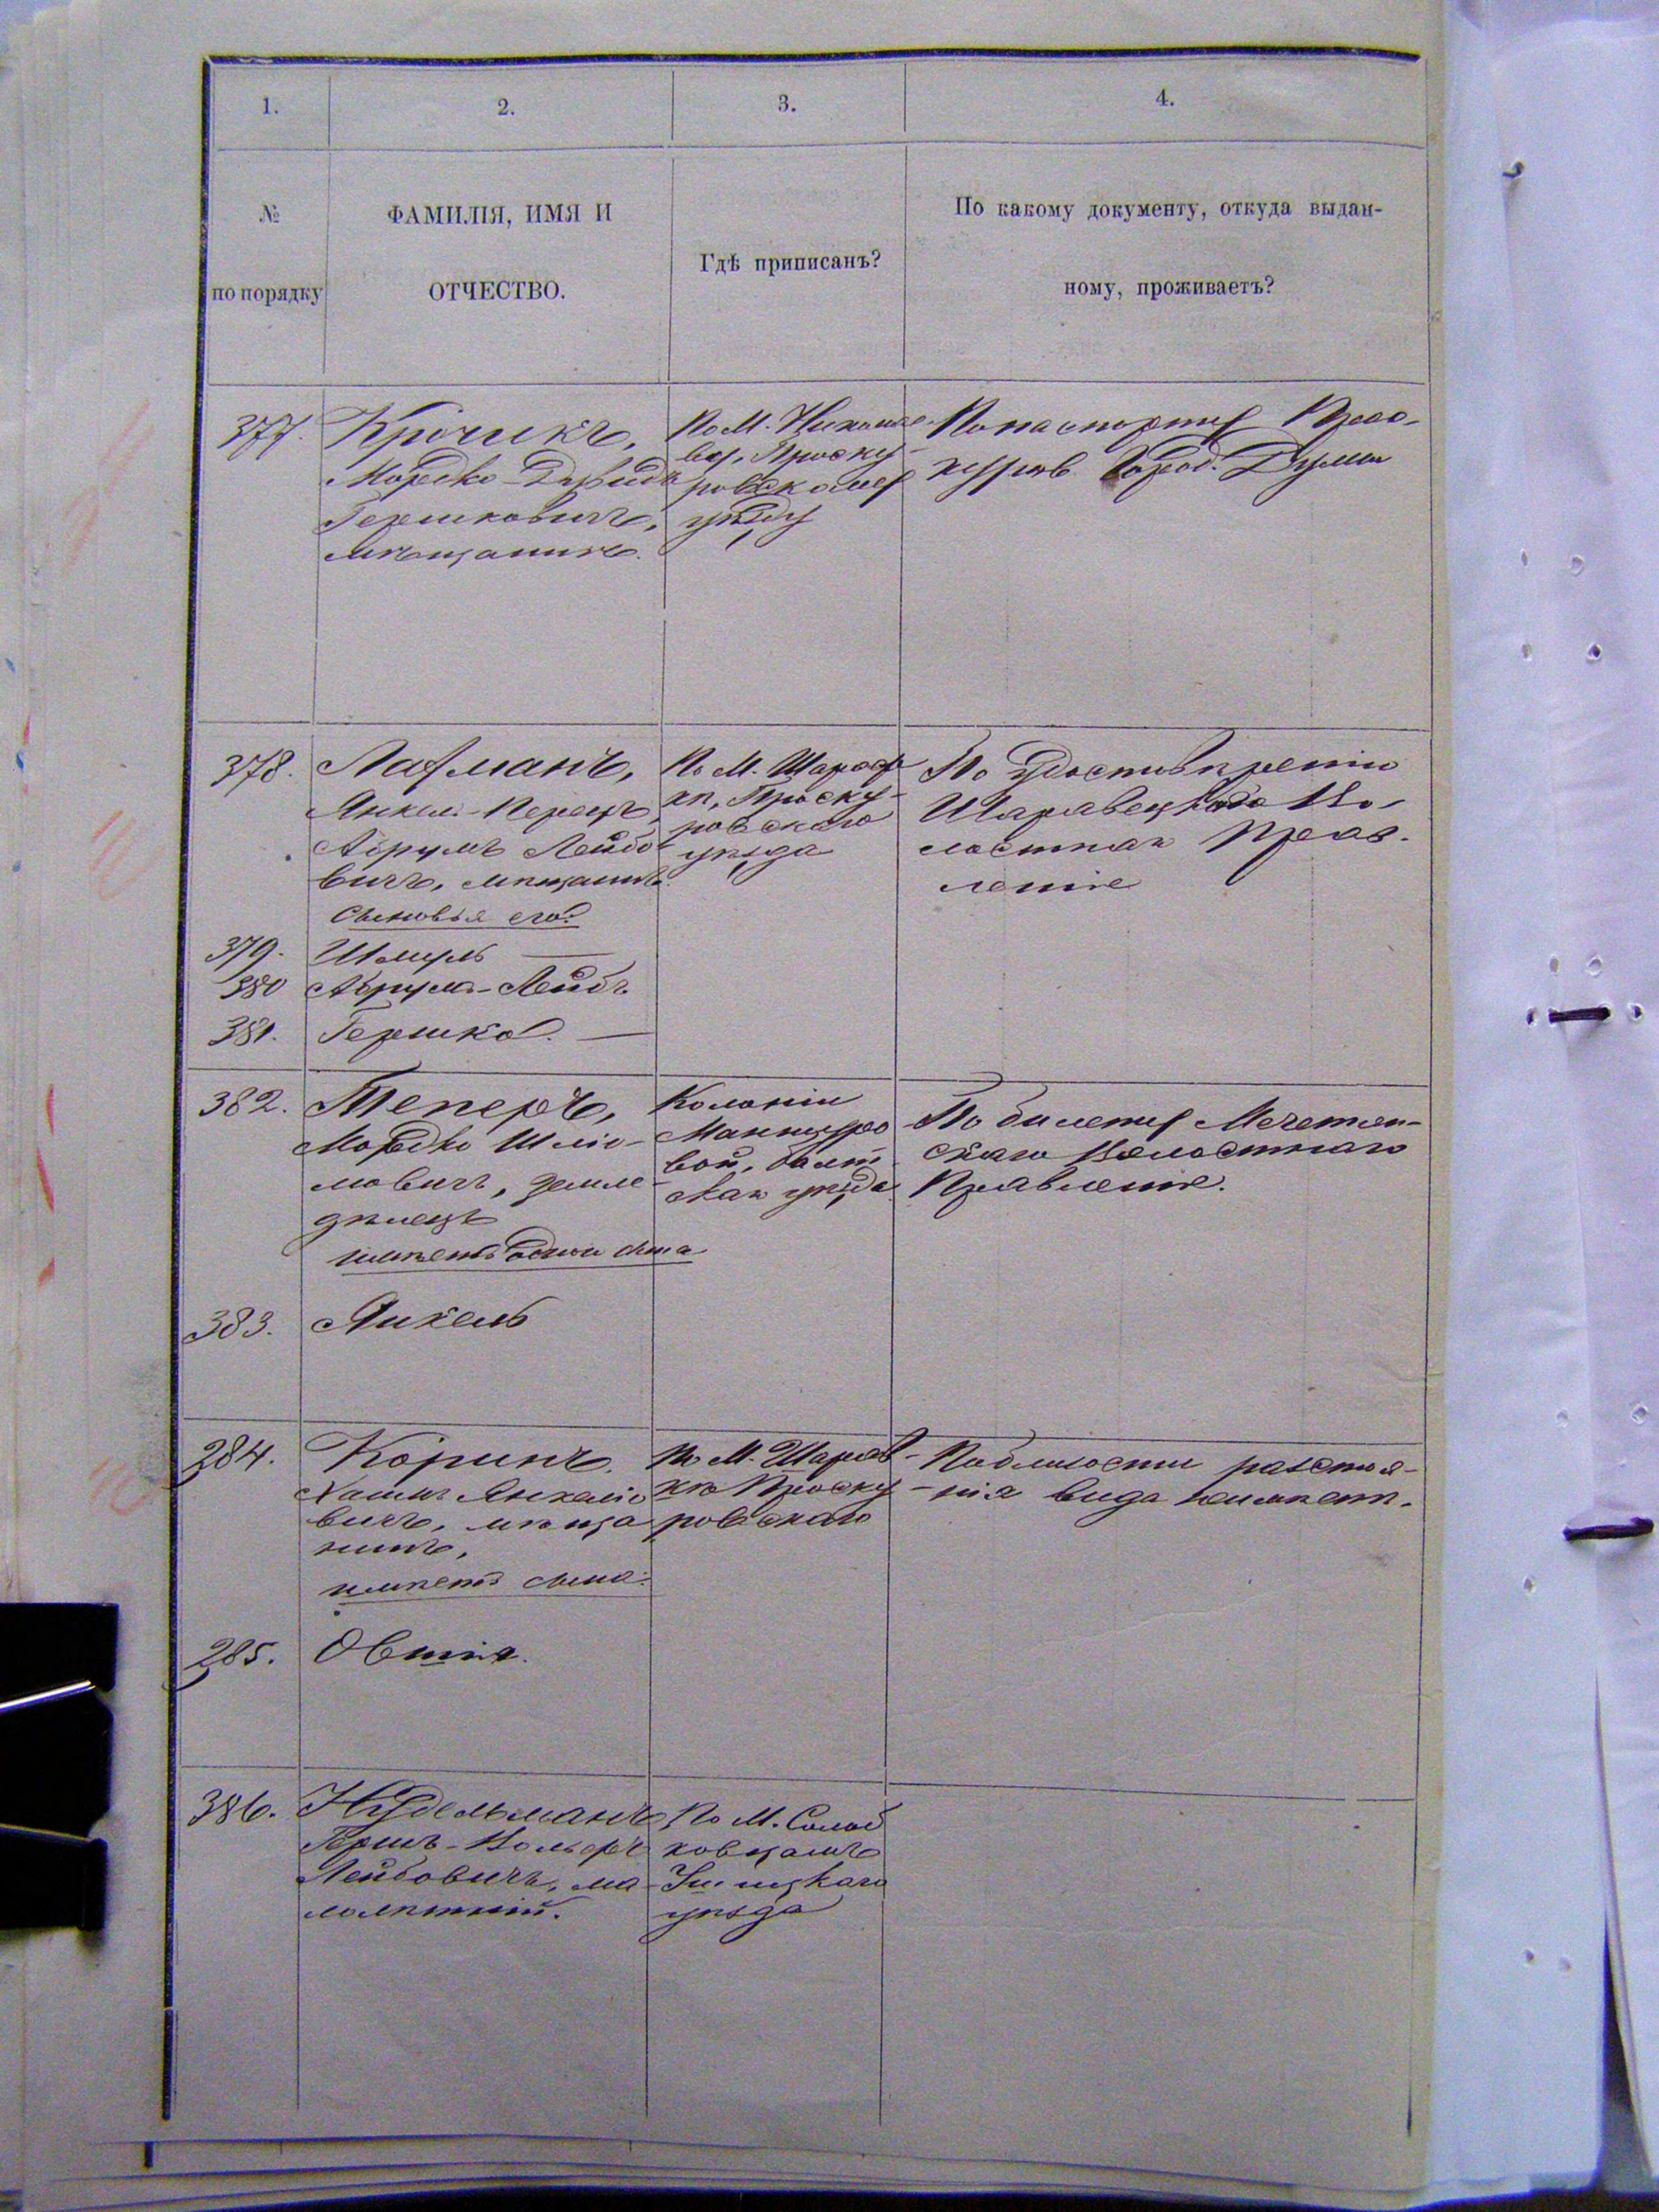 1.
2.
3.
4.
№
по порядку
ФАМИЛІЯ, ИМЯ И
ОТЧЕСТВО.
Гдѣ приписанъ?
По какому документу, откуда выдан-
ному, проживаетъ?
377.
Крочикъ,
Мордко-Давидъ
Гершковичъ,
мѣщанинъ.
По М. Николае-
ву, Проску-
ровскому
уѣзду
По паспорту Прос-
куров. Город. Думы
378.
Лафманъ,
Янкель-Перецъ
Абрумъ Лейбо
вичъ, мѣщанинъ.
Сыновья его:
По М. Шарав
кѣ, Проску-
ровскаго
уѣзда
По удостовѣренію
Шаравецкаго Во-
лостнаго Прав-
ленія
379.
Шмуль
380
Абрумъ-Лейбъ
381.
Гершко.
382.
Теперъ,
Мордко Шліо-
мовичъ, земле-
дѣлецъ
имѣетъ одного сына
Колоніи
балт
скаго уѣзда
По билету Мечетян-
скаго Волостнаго
Правленія.
383.
Янкель
284.
Коринъ.
Хаимъ Янкеліо
вичъ, мѣща
нинъ,
имѣетъ сына:
По М. Шарав-
кѣ Проску-
ровскаго
По близости разстоя-
нія вида неимѣетъ.
285.
Овшія.
386.
Нудельманъ,
Гершъ-Вольфъ
Лейбовичъ, ма-
лолѣтній.
По М. Солод
ковцамъ
Ушицкаго
уѣзда